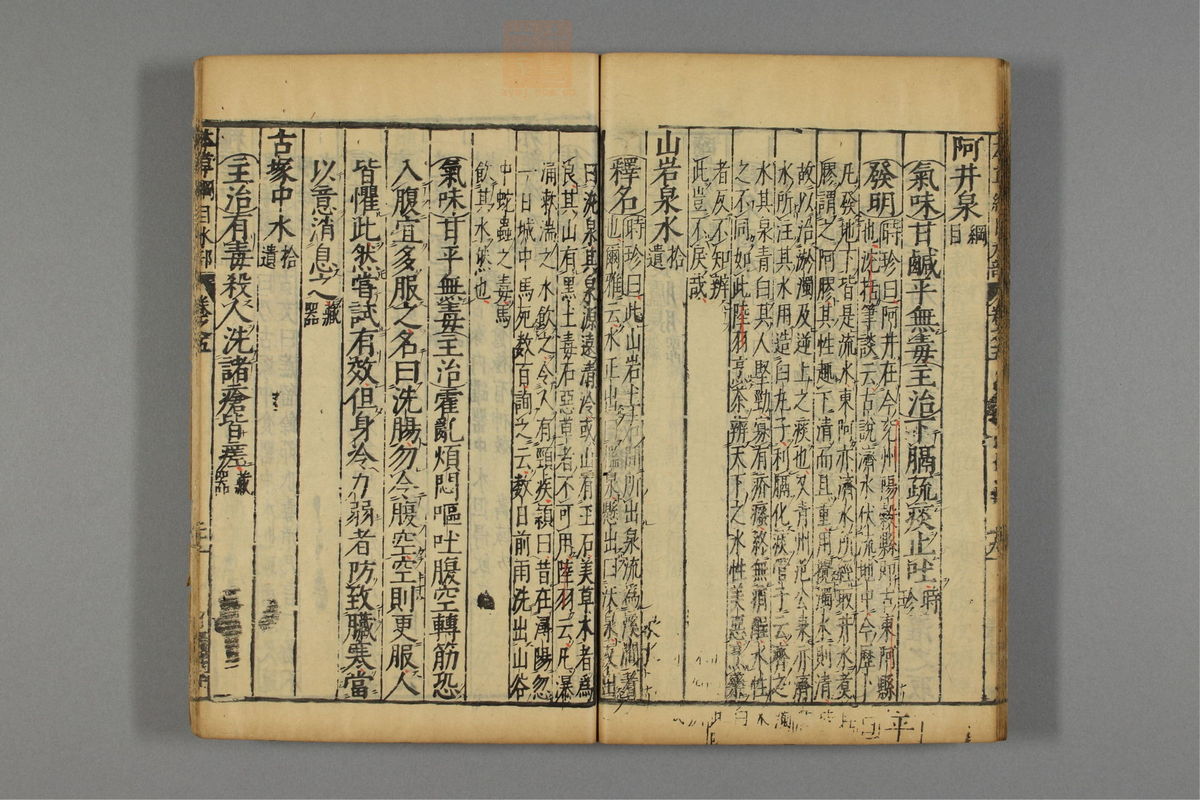 阿井泉綱目
氣味甘鹹平無毒主治下膈疏痰止吐時珍
發明時珍曰阿井在今兗州陽穀縣即古東阿縣
也沈括筆談云古說濟水伏流地中今歷下
凡發地下皆是流水東阿亦濟水所經取井水煮
膠謂之阿膠其性趣下清而且重用攪濁水則清
故以治淤濁及逆上之痰也又青州范公泉亦濟
水所注其水用造白丸子利膈化痰管子云齊之
水其泉青白其人堅勁寡有疥瘙終無痟酲水性
之不同如此陸羽烹茶辨天下之水性美惡
者反不知辨
此豈不戾哉
山岩泉水拾遺
釋名時珍曰此山岩土石間所出泉流為溪澗者
也爾雅云水正出曰濫泉懸出曰沃泉仄出
曰氿泉其泉源遠清冷或山有玉石美草木者為
良其山有黑土毒石惡草者不可用陸羽云凡瀑
涌漱湍之水飲之令人有頸疾頴曰昔在潯陽忽
一日城中馬死數百詢之云數日前雨洗出山谷
中蛇蟲之毒馬
飲其水然也
氣味甘平無毒主治霍亂煩悶嘔吐腹空轉筋恐
入腹宜多服之名曰洗腸勿令腹空空則更服人
皆懼此然嘗試有效但身冷力弱者防致臟寒當
以意消息之藏器
古塚中水拾遺
主治有毒殺人洗諸瘡皆瘥藏器
本草綱目水部 卷之五